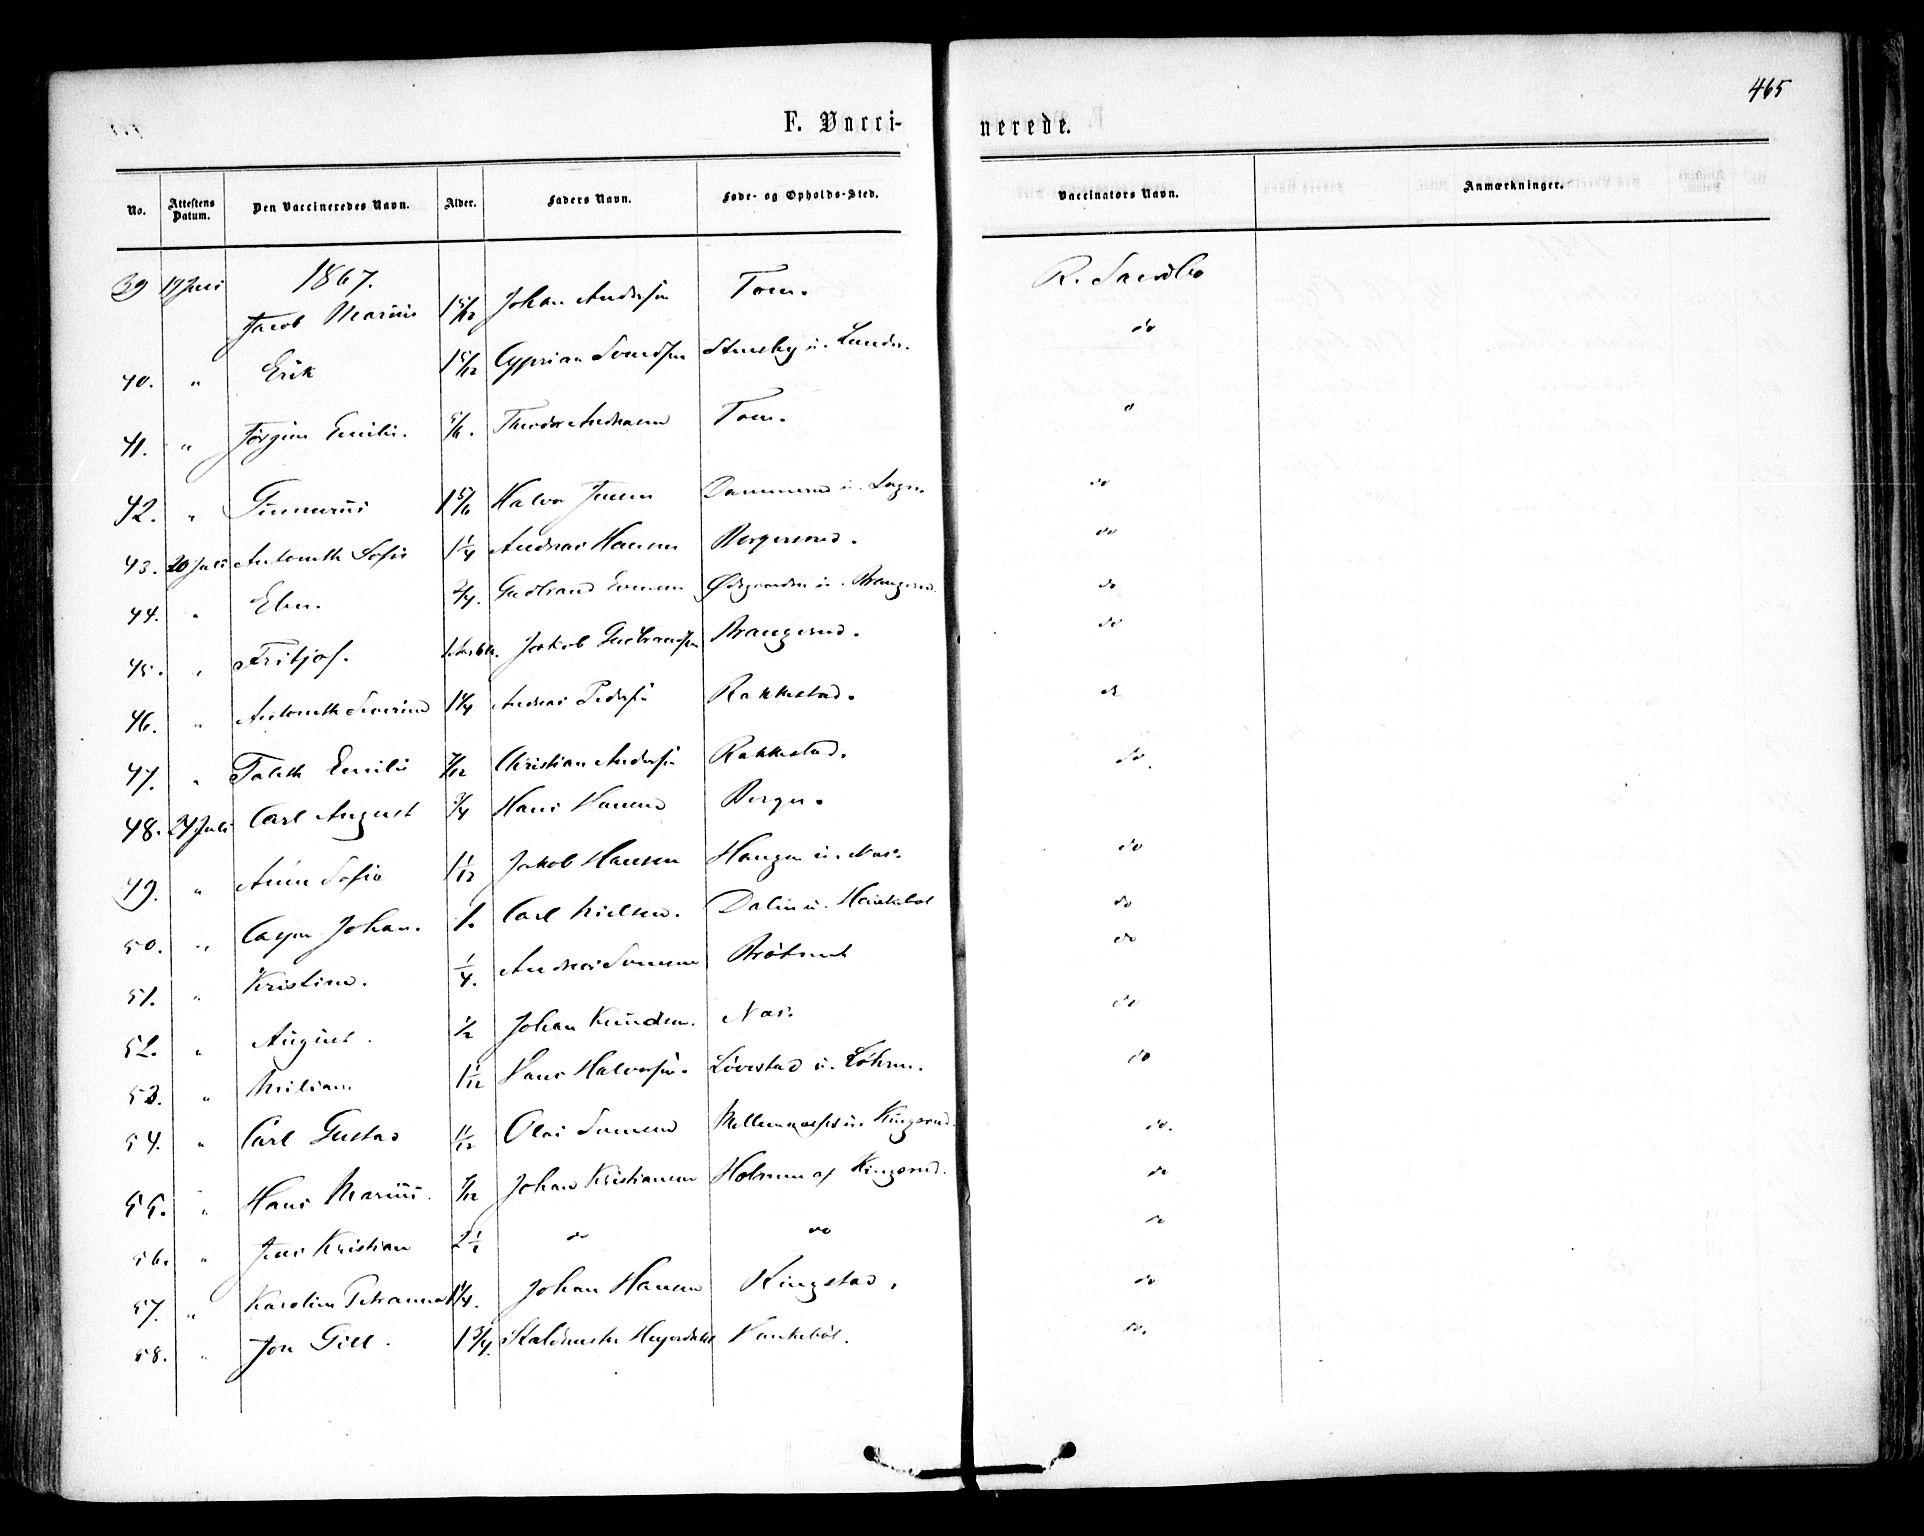 465
F. Vacci-nerede.
No. Attestens Datum. Den Vaccineredes Navn. Alder. Faders Navn. Føde- og Opholds-Sted. Vaccinators Navn. Anmærkninger.
1867.
39 19 Juli Jacob Marius 1 5/12 Johan Andersen Tom. R. Sandbo
40. " Erik 1 5/12 Cyprian Svendsen Stensby u. Lunder. do
41. " Jørgine Emilie. 5/6. Theodor Andreasen Tom.
42. " Gunnerius 1 5/6 Halvor Jensen u. do
43. 20 Juli Antonette Sofie 1 1/4 Andreas Hansen Bergerud. do
44. " Elen. 2/4. Gudbrand Evensen Ødegaarden u. Brangerud. do
45. " Fritjof. Jakob Gudbrandsen Brangerud. do
46. " Antonette Severine 1 1/4 Andreas Pedersen Rakkestad. do
47. " Talette Emilie 7/12 Christian Andersen Rakkestad. do
48. 24 Juli Carl August 3/4 Hans Hansen Berger.
49. " Anne Sofie 1 1/12 Jakob Hansen Haugen u. Nas. do
50. " Casper Johan. 1. Carl Nielsen. Dalen u. do
51. " Kristine. 1/4. Andreas Svensen do
52. " August. 1/2 Johan Knudsen. Nas. do
53. " Miliam 1 1/12 Hans Halvorsen. Løvestad u. Løkren. do
54. " Carl Gustav 11/12 Olai Svensen u. Kingsrud. do.
55. " Hans Marius. 7/12 Johan Kristiansen af Kingsrud. do
56. " Jens Kristian 2 1/2 do do do
57. " Karoline Petranna 1 1/4. Johan Hansen Ringstad. do
58. " Jon Gill. 1 3/4. Stald­mester Heyerdahl do.